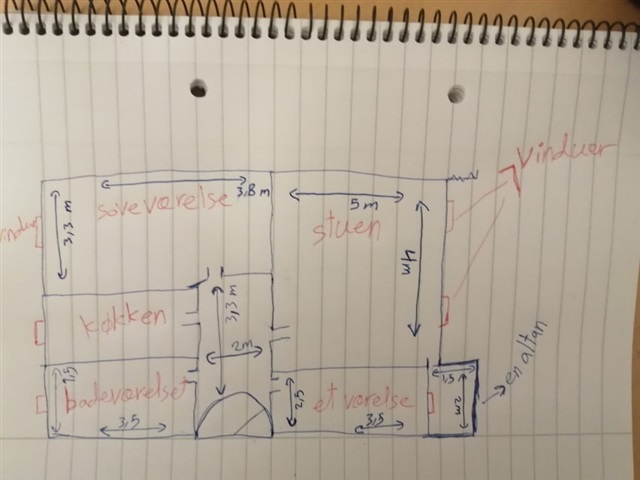 Vinduer
3,8 m
soveværelse
3,3 m
5 m
stuen
4m
køkken
3,3 m
2m
en altan
1,5
badeværelset
3,5
2,5
et værelse
3,5
1,5
2m